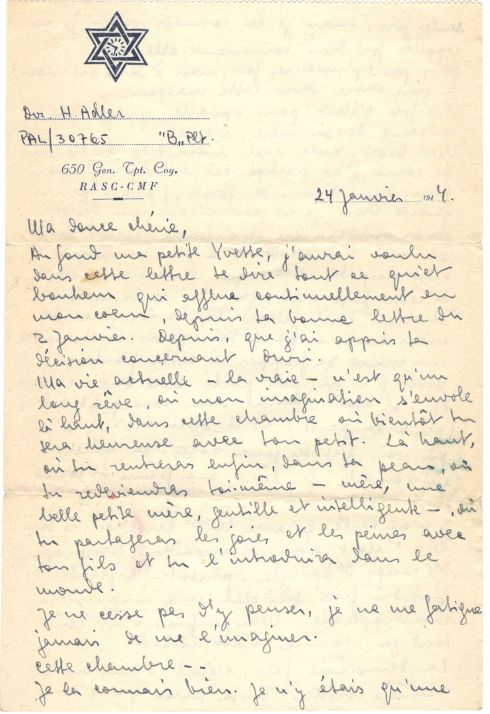 Dvr. H. Adler
PAL/30765 "B" Plt.
650 Gen. Tpt. Coy.
RASC-CMF
24 Janvier 1947.
Ma douce chérie,
Au fond ma petite Yvette, j'aurai voulu
dans cette lettre te dire tout ce quiet
bonheur qui afflue continuellement en
mon coeur, depuis ta bonne lettre du
2 Janvier. Depuis, que j'ai appris ta
décision concernant
Ma vie actuelle - la vraie - n'est qu'un
long rêve, où mon imagination s'envole
là haut, dans cette chambre où bientôt tu
sera heureuse avec ton petit. Là haut,
où tu rentreras enfin, dans ta peau, où
tu redeviendras toi-même - mère, une
belle petite mère, gentille et intelligente -, où
tu partageras les joies et les peines avec
ton fils et tu l'introduira dans le
monde.
Je ne cesse pas d'y penser, je ne me fatigue
jamais de me l'imaginer.
Cette chambre --
Je la connais bien. Je n'y étais qu'une